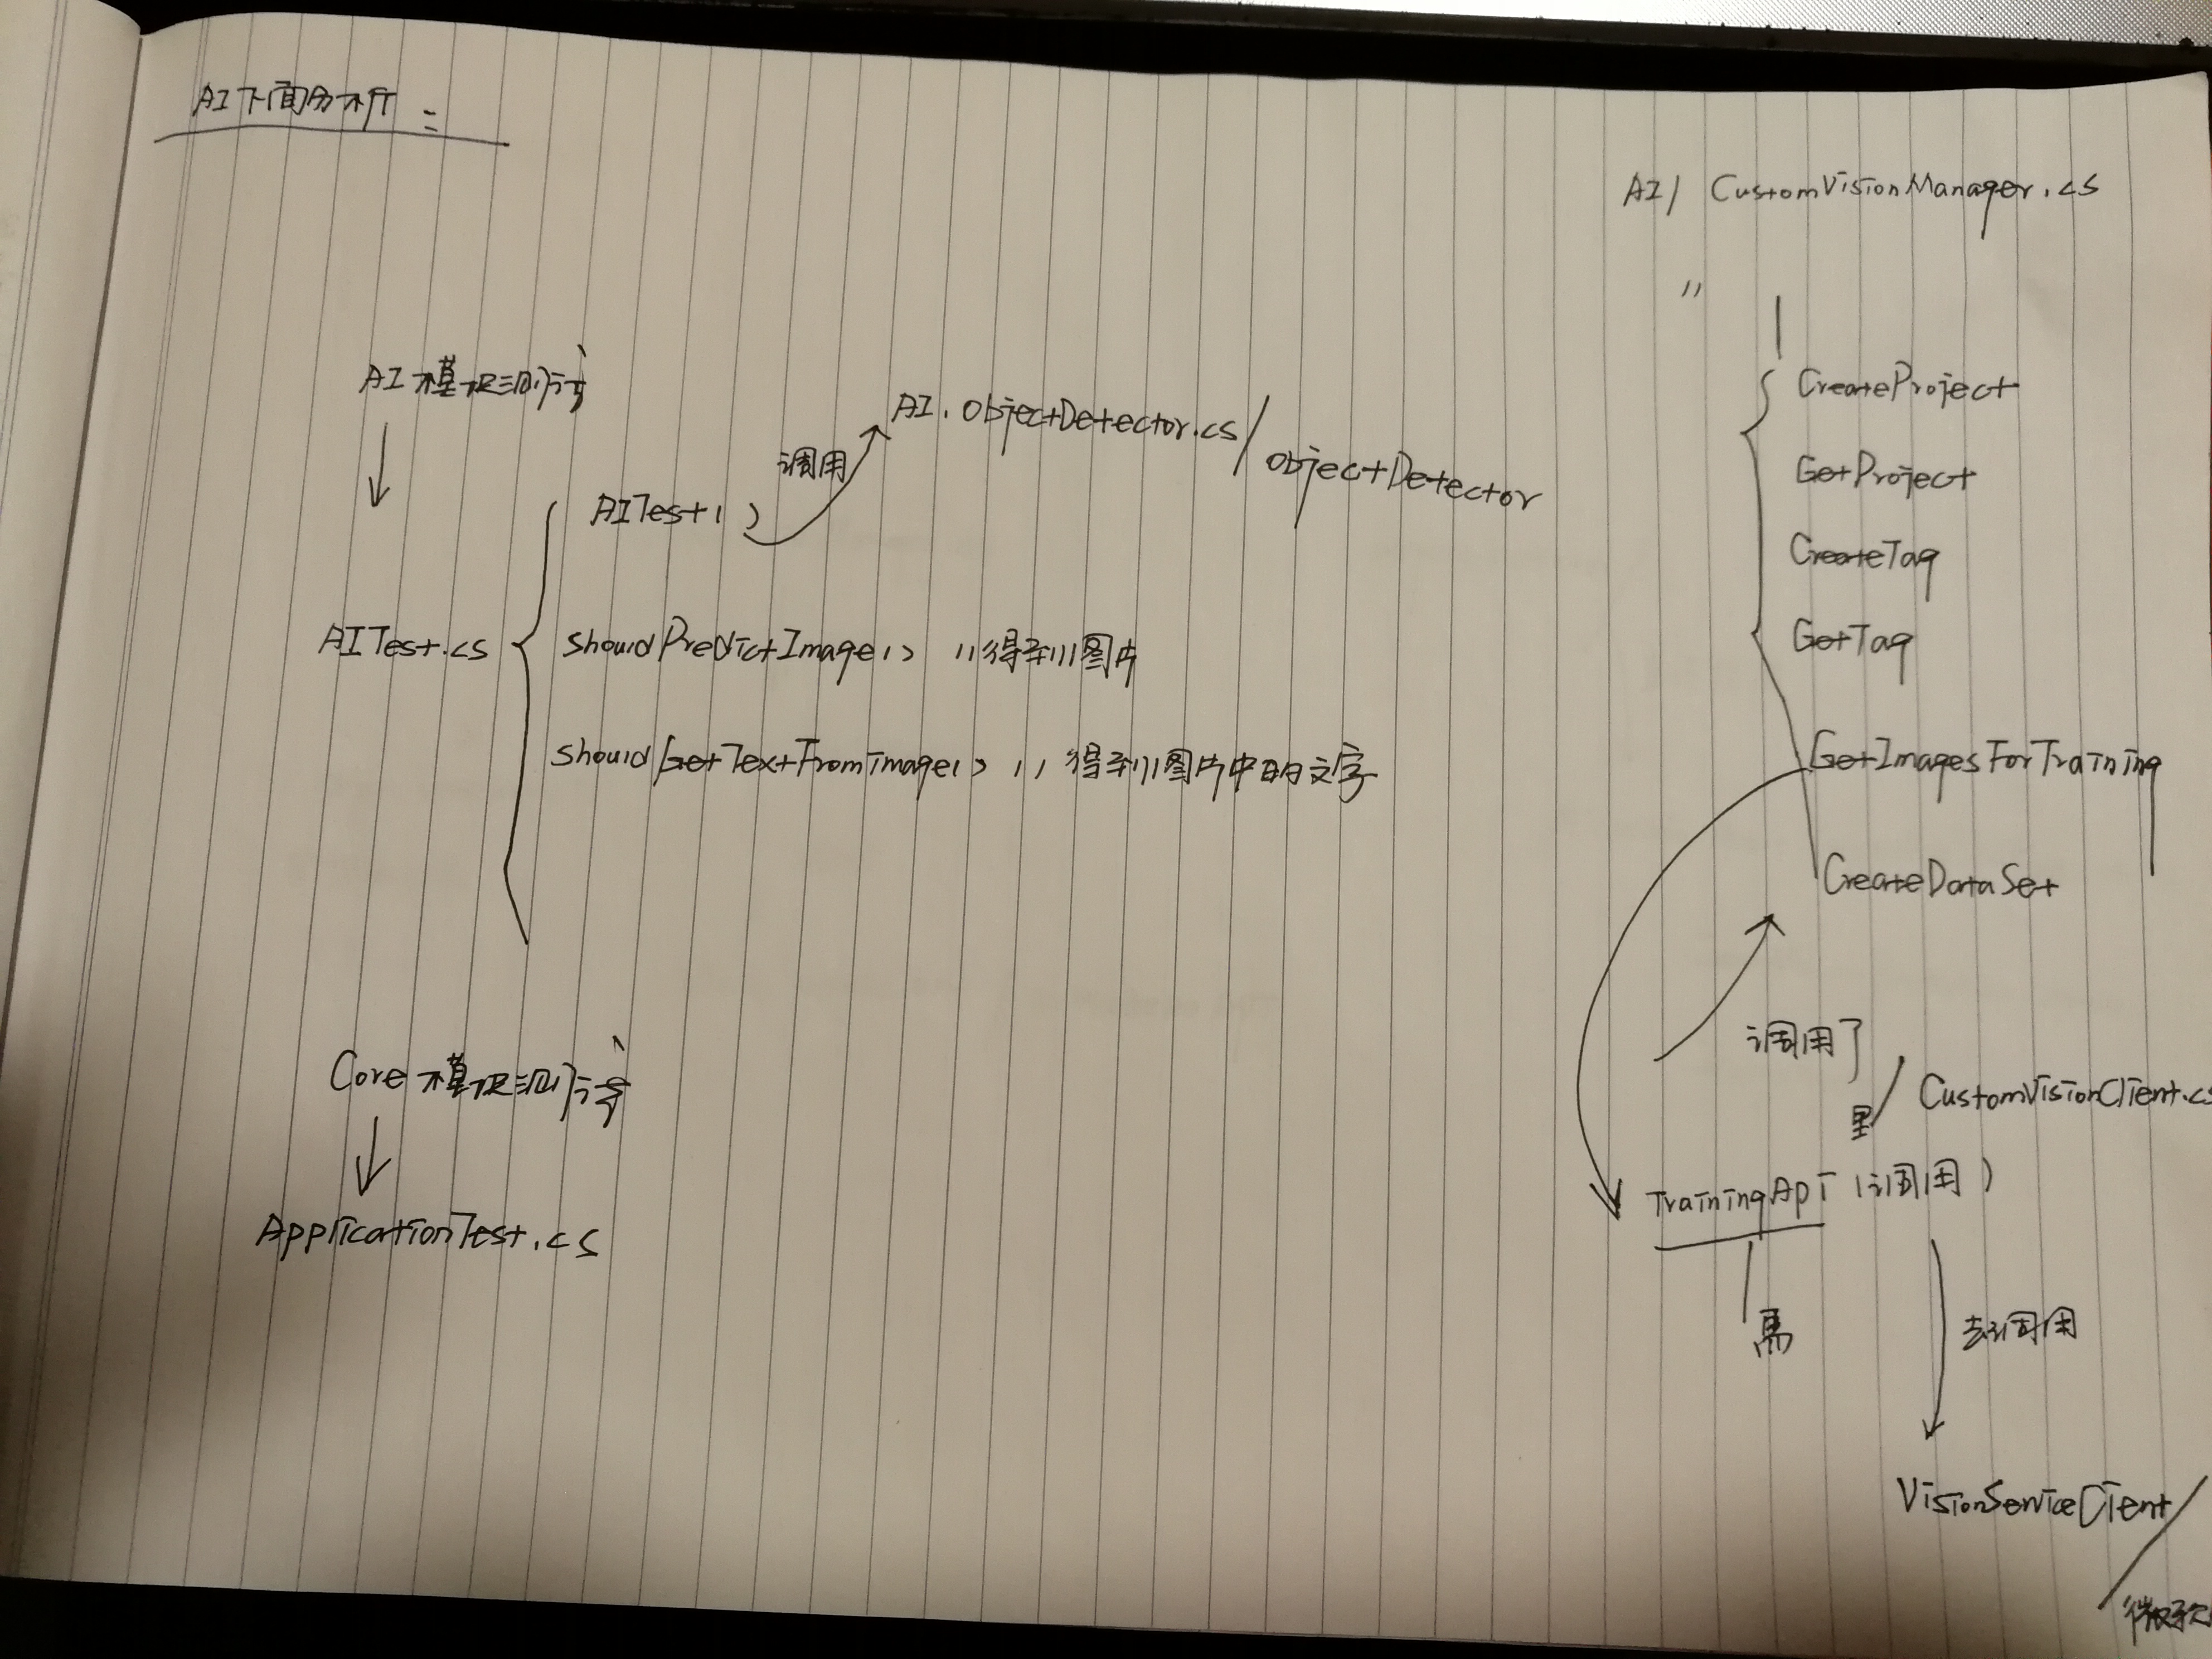 AI下面分析：
AI模块测试
调用
AI.ObjectDetector.cs/
ObjectDetector
AITest()
AITest.cs
shouldPredictImage() //得到图片
shouldGetTextFromimage() //得到图片中的文字
Core模块测试
ApplicationTest.cs
AI/ CustomVisionManager.cs
"
CreateProject
GetProject
CreateTag
GetTag
GetImagesForTraining
CreateDataSet
调用了
里/ CustomVisionClient.cs
TrainingApi (调用)
去调用
VisionServiceClient/
微软